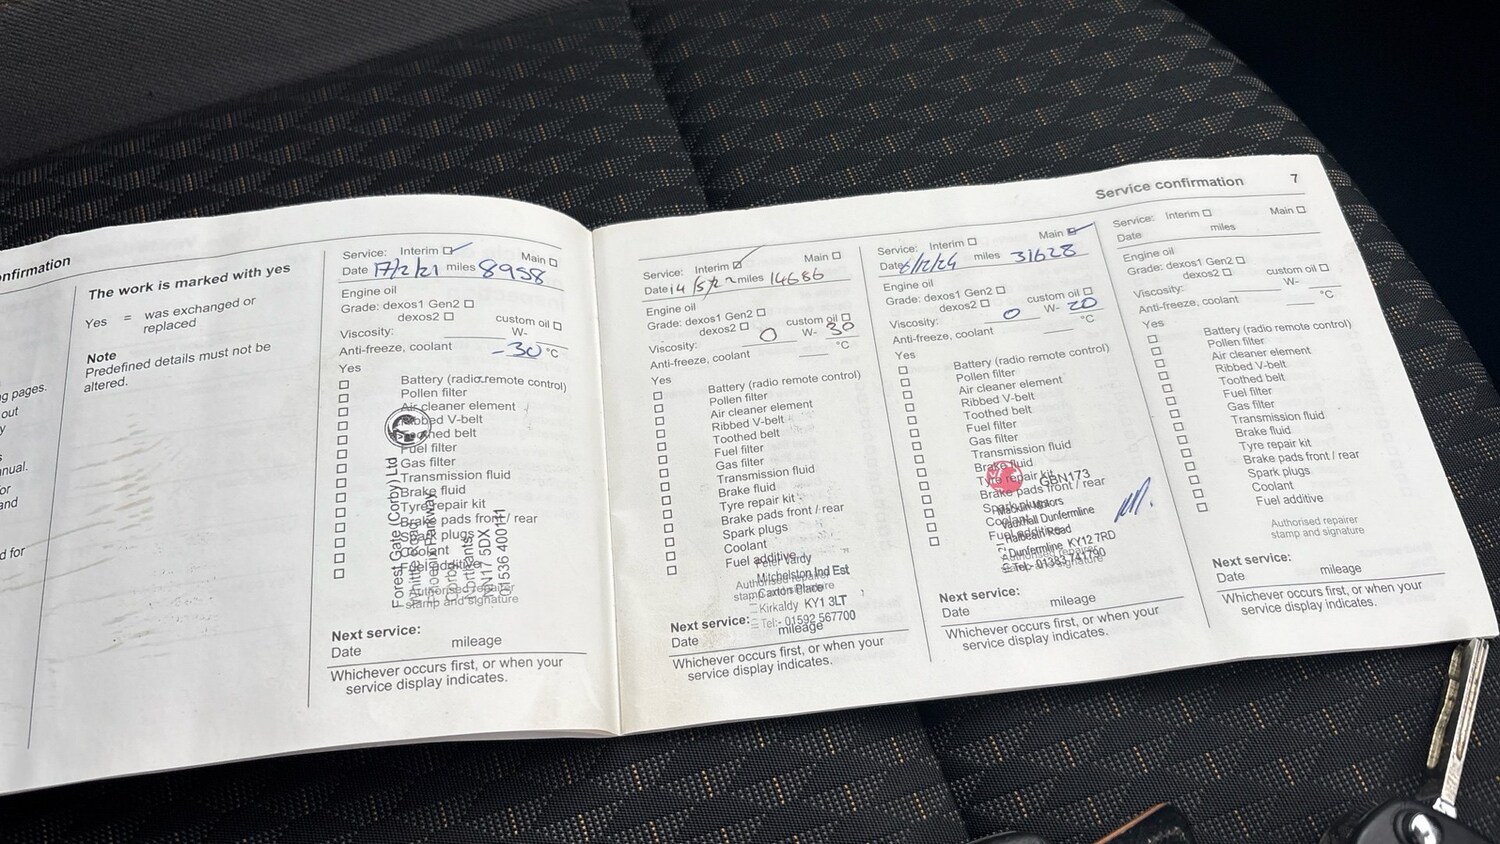 nfirmation
g pages.
out
y
s
nual.
or
and
d for
The work is marked with yes
Yes = was exchanged or
replaced
Note
Predefined details must not be
altered.
Service: Interim Main
Date 17/2/21 miles 8958
Engine oil
Grade: dexos1 Gen2
dexos2 custom oil
Viscosity: W-
Anti-freeze, coolant -30 °C
Yes
Battery (radio remote control)
Pollen filter
Air cleaner element
Ribbed V-belt
Toothed belt
Fuel filter
Gas filter
Transmission fluid
Brake fluid
Tyre repair kit
Brake pads front / rear
Spark plugs
Coolant
Fuel additive
Authorised repairer
stamp and signature
Forest Gate (Corby) Ltd
Phoenix Parkway
Corby
Northants
NN17 5DX
01536 400111
Next service:
Date mileage
Whichever occurs first, or when your
service display indicates.
Service confirmation 7
Service: Interim Main
Date 14/5/22 miles 14686
Engine oil
Grade: dexos1 Gen2
dexos2 custom oil
Viscosity: 0 W- 30
Anti-freeze, coolant °C
Yes
Battery (radio remote control)
Pollen filter
Air cleaner element
Ribbed V-belt
Toothed belt
Fuel filter
Gas filter
Transmission fluid
Brake fluid
Tyre repair kit
Brake pads front / rear
Spark plugs
Coolant
Fuel additive
Authorised repairer
stamp and signature
Peter Vardy
Mitchelston Ind Est
Caxton Place
Kirkaldy KY1 3LT
Tel:- 01592 567700
Next service:
Date mileage
Whichever occurs first, or when your
service display indicates.
Service: Interim Main
Date 6/12/24 miles 31628
Engine oil
Grade: dexos1 Gen2
dexos2 custom oil
Viscosity: 0 W- 20
Anti-freeze, coolant °C
Yes
Battery (radio remote control)
Pollen filter
Air cleaner element
Ribbed V-belt
Toothed belt
Fuel filter
Gas filter
Transmission fluid
Brake fluid
Tyre repair kit
Brake pads front / rear
Spark plugs
Coolant
Fuel additive
Authorised repairer
stamp and signature
GBN173
Motors
Vauxhall Dunfermline
Halbeath Road
Dunfermline KY12 7RD
Tel:- 01383 741790
Next service:
Date mileage
Whichever occurs first, or when your
service display indicates.
Service: Interim Main
Date miles
Engine oil
Grade: dexos1 Gen2
dexos2 custom oil
Viscosity: W-
Anti-freeze, coolant °C
Yes
Battery (radio remote control)
Pollen filter
Air cleaner element
Ribbed V-belt
Toothed belt
Fuel filter
Gas filter
Transmission fluid
Brake fluid
Tyre repair kit
Brake pads front / rear
Spark plugs
Coolant
Fuel additive
Authorised repairer
stamp and signature
Next service:
Date mileage
Whichever occurs first, or when your
service display indicates.